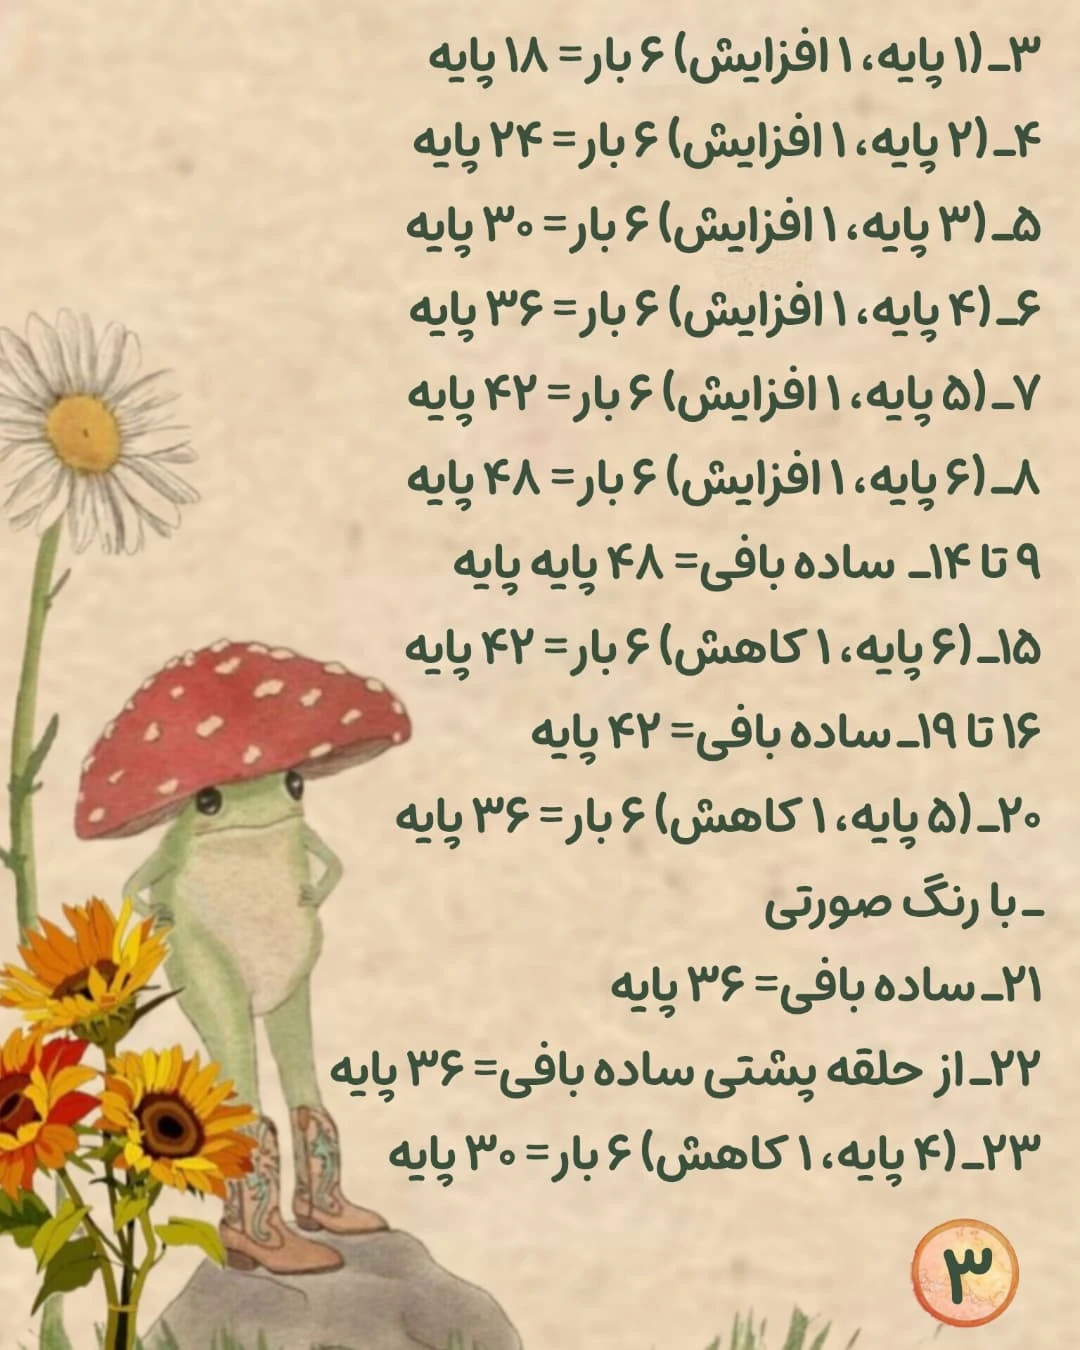 ۳ـ (۱ پایه، ۱ افزایش) ۶ بار= ۱۸ پایه
۴ـ (۲ پایه، ۱ افزایش) ۶ بار= ۲۴ پایه
۵ـ (۳ پایه، ۱ افزایش) ۶ بار= ۳۰ پایه
۶ـ (۴ پایه، ۱ افزایش) ۶ بار= ۳۶ پایه
۷ـ (۵ پایه، ۱ افزایش) ۶ بار= ۴۲ پایه
۸ـ (۶ پایه، ۱ افزایش) ۶ بار= ۴۸ پایه
۹ تا ۱۴ـ ساده بافی= ۴۸ پایه پایه
۱۵ـ (۶ پایه، ۱ کاهش) ۶ بار= ۴۲ پایه
۱۶ تا ۱۹ـ ساده بافی= ۴۲ پایه
۲۰ـ (۵ پایه، ۱ کاهش) ۶ بار= ۳۶ پایه
ـ با رنگ صورتی
۲۱ـ ساده بافی= ۳۶ پایه
۲۲ـ از حلقه پشتی ساده بافی= ۳۶ پایه
۲۳ـ (۴ پایه، ۱ کاهش) ۶ بار= ۳۰ پایه
۳